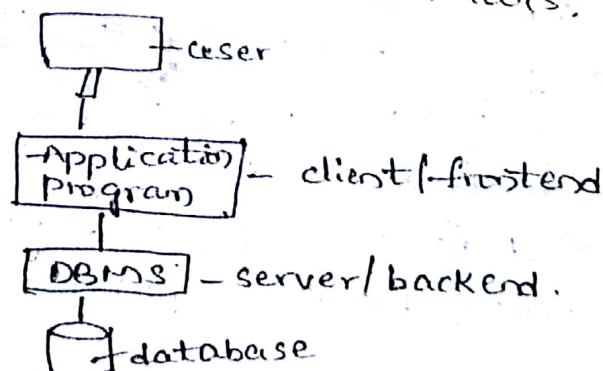 user
Application
program - client/frontend
DBMS - server/backend.
database